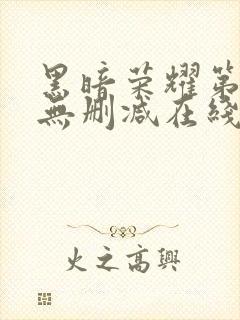 黑暗荣耀第
無删减在綫
火之高興